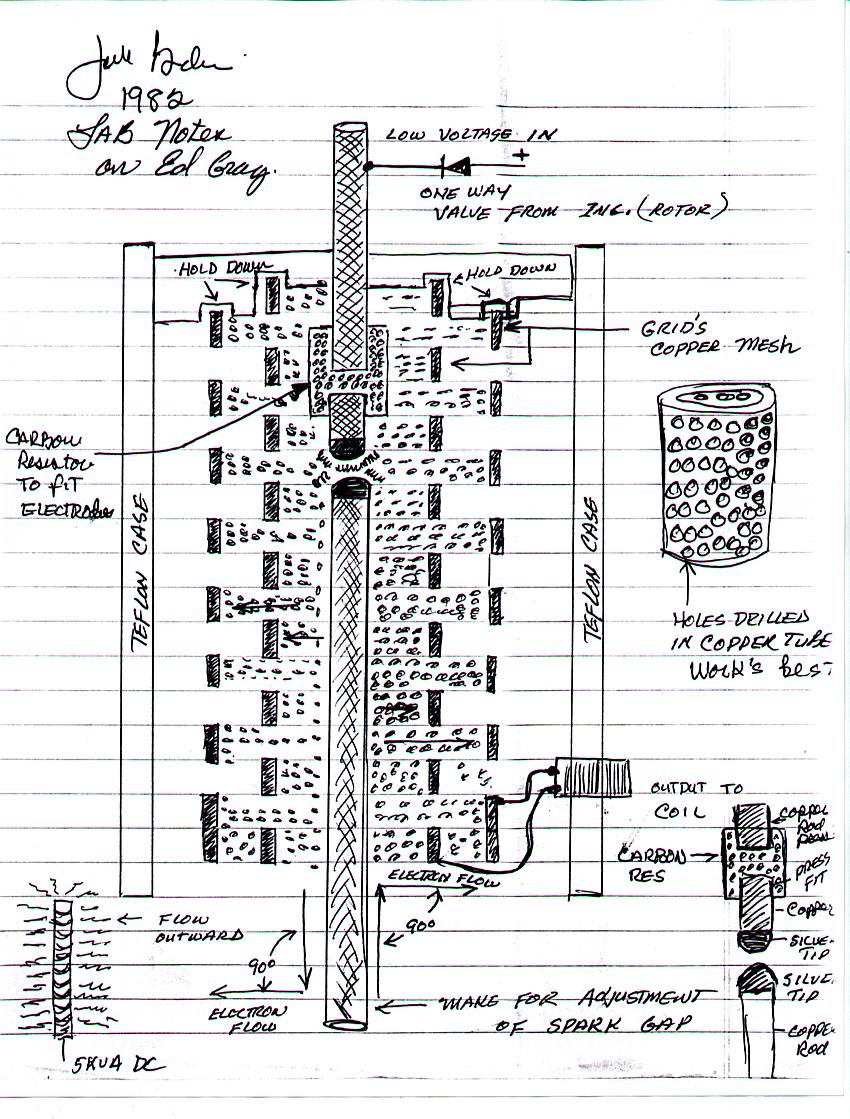 1982
LAB Notes
on Ed Gray.
LOW VOLTAGE IN
+
ONE WAY
VALVE FROM ING. (ROTOR)
HOLD DOWN
HOLD DOWN
GRID'S
COPPER MESH
CARBON
RESISTOR
TO FIT
ELECTRODES
TEFLON CASE
TEFLON CASE
HOLES DRILLED
IN COPPER TUBE
WORK'S best
OUTPUT TO
COIL
COPPER
ROD
CARBON
RES
PRESS
FIT
COPPER
SILVE
TIP
SILVE
TIP
COPPER
ROD
ELECTRON FLOW
90°
FLOW
OUTWARD
90°
ELECTRON
FLOW
MAKE FOR ADJUSTMENT
OF SPARK GAP
5KVA DC